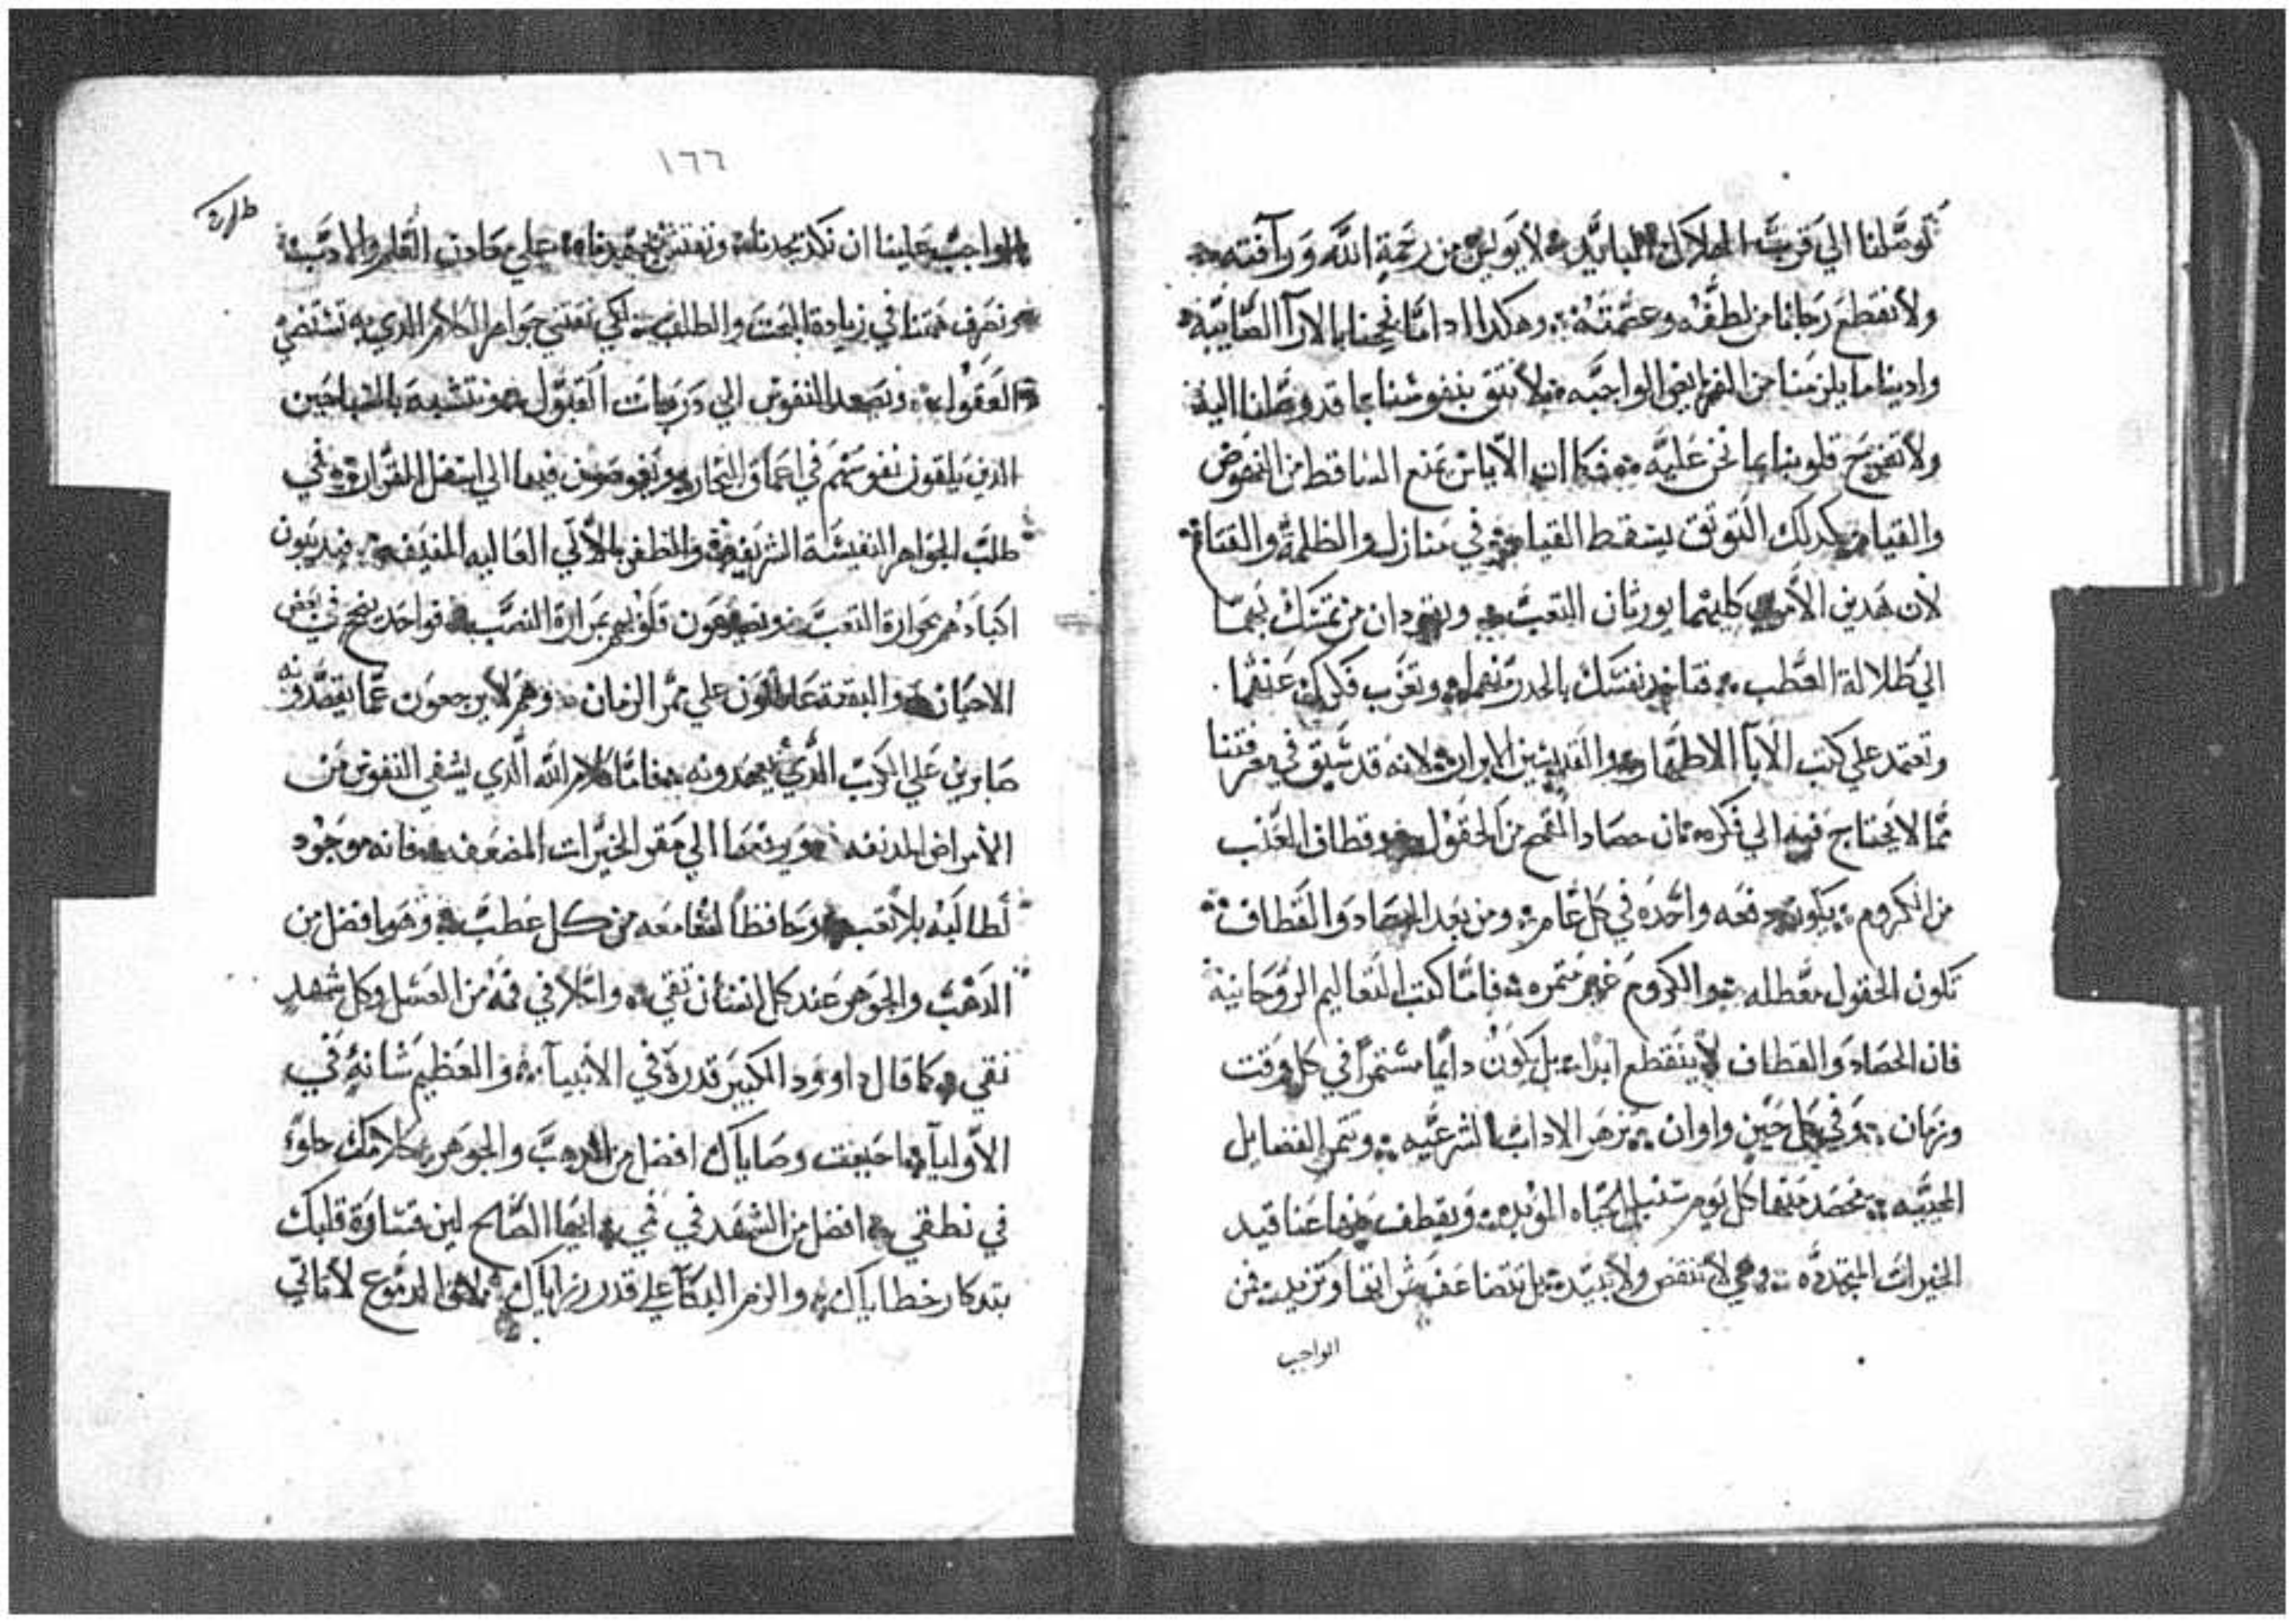 توصلنا الي قرب الهلاك المايد لا يويس من رحمة الله ورآفته
ولا نقطع رجانا من لطفه وعصمته وهكدا ادا ما نجحنا بالارآ الصايبه
وادينا ما يلزمنا من الفرايض الواجبه لا نتق بنفوسنا بما قد وصلنا اليه
ولا تفرح قلوبنا بما نحن عليه فكما ان الاياس يمنع الساقط من النهوض
والقيام كدلك التوتق يسقط القيام في منازل والظلمة والقتام
لان هدين الأمرين كليهما يورثان التعب ويقودان من تمسك بهما
الي ظلالة العطب فتاخد نفسك بالحدر منهما وتغرب فكرك عنهما
وتعتمد علي كتب الآبا الاطهار والقديسين الابرار لانه قد سبق في معرفتنا
مما لا يحتاج فيه الي فكره ان حصاد القمح من الحقول وقطاف العنب
من الكروم يكون دفعه واحده في كل عام ومن بعد الحصاد والقطاف
تكون الحقول معطله والكروم غير متمره فاما كتب التعاليم الروحانية
فان الحصاد والقطاف لا ينقطع ابدا بل يكون دايما مستمرا في كل وقت
وزمان وفي كل حين واوان تزهر الاداب الشرعيه وتتمر الفضايل
المحييه تحصد منها كل يوم سنبل الحياه الموبده ويقطف منها عناقيد
الخيرات المتجدده وهي لا تنقص ولا تبيد بل تتضاعف اتمارها وتزيد فمن
الواجب
١٦٦
الواجب علينا ان نكد بجدنا ونعتني علي التعلم والادب
ونصرف همتنا في زيادة البحت والطلب لكي نقتني جواهر الكلام الدي به تستضي
العقول وتصعد النفوس الي درجات القبول ونتشبه
الدين يلقون نفوسهم في اعماق البحار ويغوصون فيها الي اسفل القرار في
طلب الجواهر النفيسة الشريفة والظفر بالألي العاليه المنيفه فيديبون
اكبادهم بحرارة التعب قلوبهم بمرارة النصب فواحد ينجح في بعض
الاحيان والبقية علي ممر الزمان وهم لا يرجعون عما يقصدونه
صابرين علي الكرب الدي يجدونه فاما كلام الله الدي يشفي النفوس من
الأمراض المدنفه ويرفعها الي مقر الخيرات المضعفه فانه موجود
لطالبيه بلا تعب وحافظا لمقامعه من كل عطب وهو افضل من
الدهب والجوهر عند كل انسان تقي واحلا في فمه من العسل وكل شهد
نقي كما قال داوود الكبير قدره في الأنبيآ والعظيم شانه في
الأوليآ احببت وصاياك افضل من الدهب والجوهر كلامك حلو
في نطقي افضل من الشهد في فمي ايها الصالح لين قساوة قلبك
بتدكار خطاياك والزم البكآ علي قدر رزاياك الدموع لا تاتي